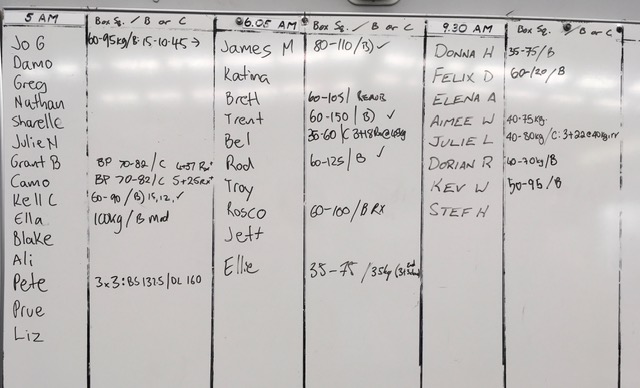 5 AM Box Sq. / B or C
Jo G 60-95kg/B:15-10-45→
Damo
Greg
Nathan
Sharelle
Julie N
Grant B BP 70-82/C 4+37 Rx+
Camo BP 70-82/C 5+25 Rx+
Kell C 60-90/B) 15,12,✓
Ella 100kg/B mod
Blake
Ali
Pete 3x3: BS 137.5/DL 160
Prue
Liz
6.05 AM Box Sq. / B or C
James M 80-110/B) ✓
Katina
Brett 60-105/
Trent 60-150/B) ✓
Bel 35-60/C 3+18
Rod 60-125/B ✓
Troy
Rosco 60-100/B RX
Jeff
Ellie 35-75/35kg
9.30 AM Box Sq. / B or C
DONNA H 35-75/B
FELIX D 60-120/B
ELENA A
AIMEE W 40-75kg.
JULIE L 40-80kg/C: 3+22@40kg
DORIAN R 60-70kg/B
KEV W 50-95/B
STEF H